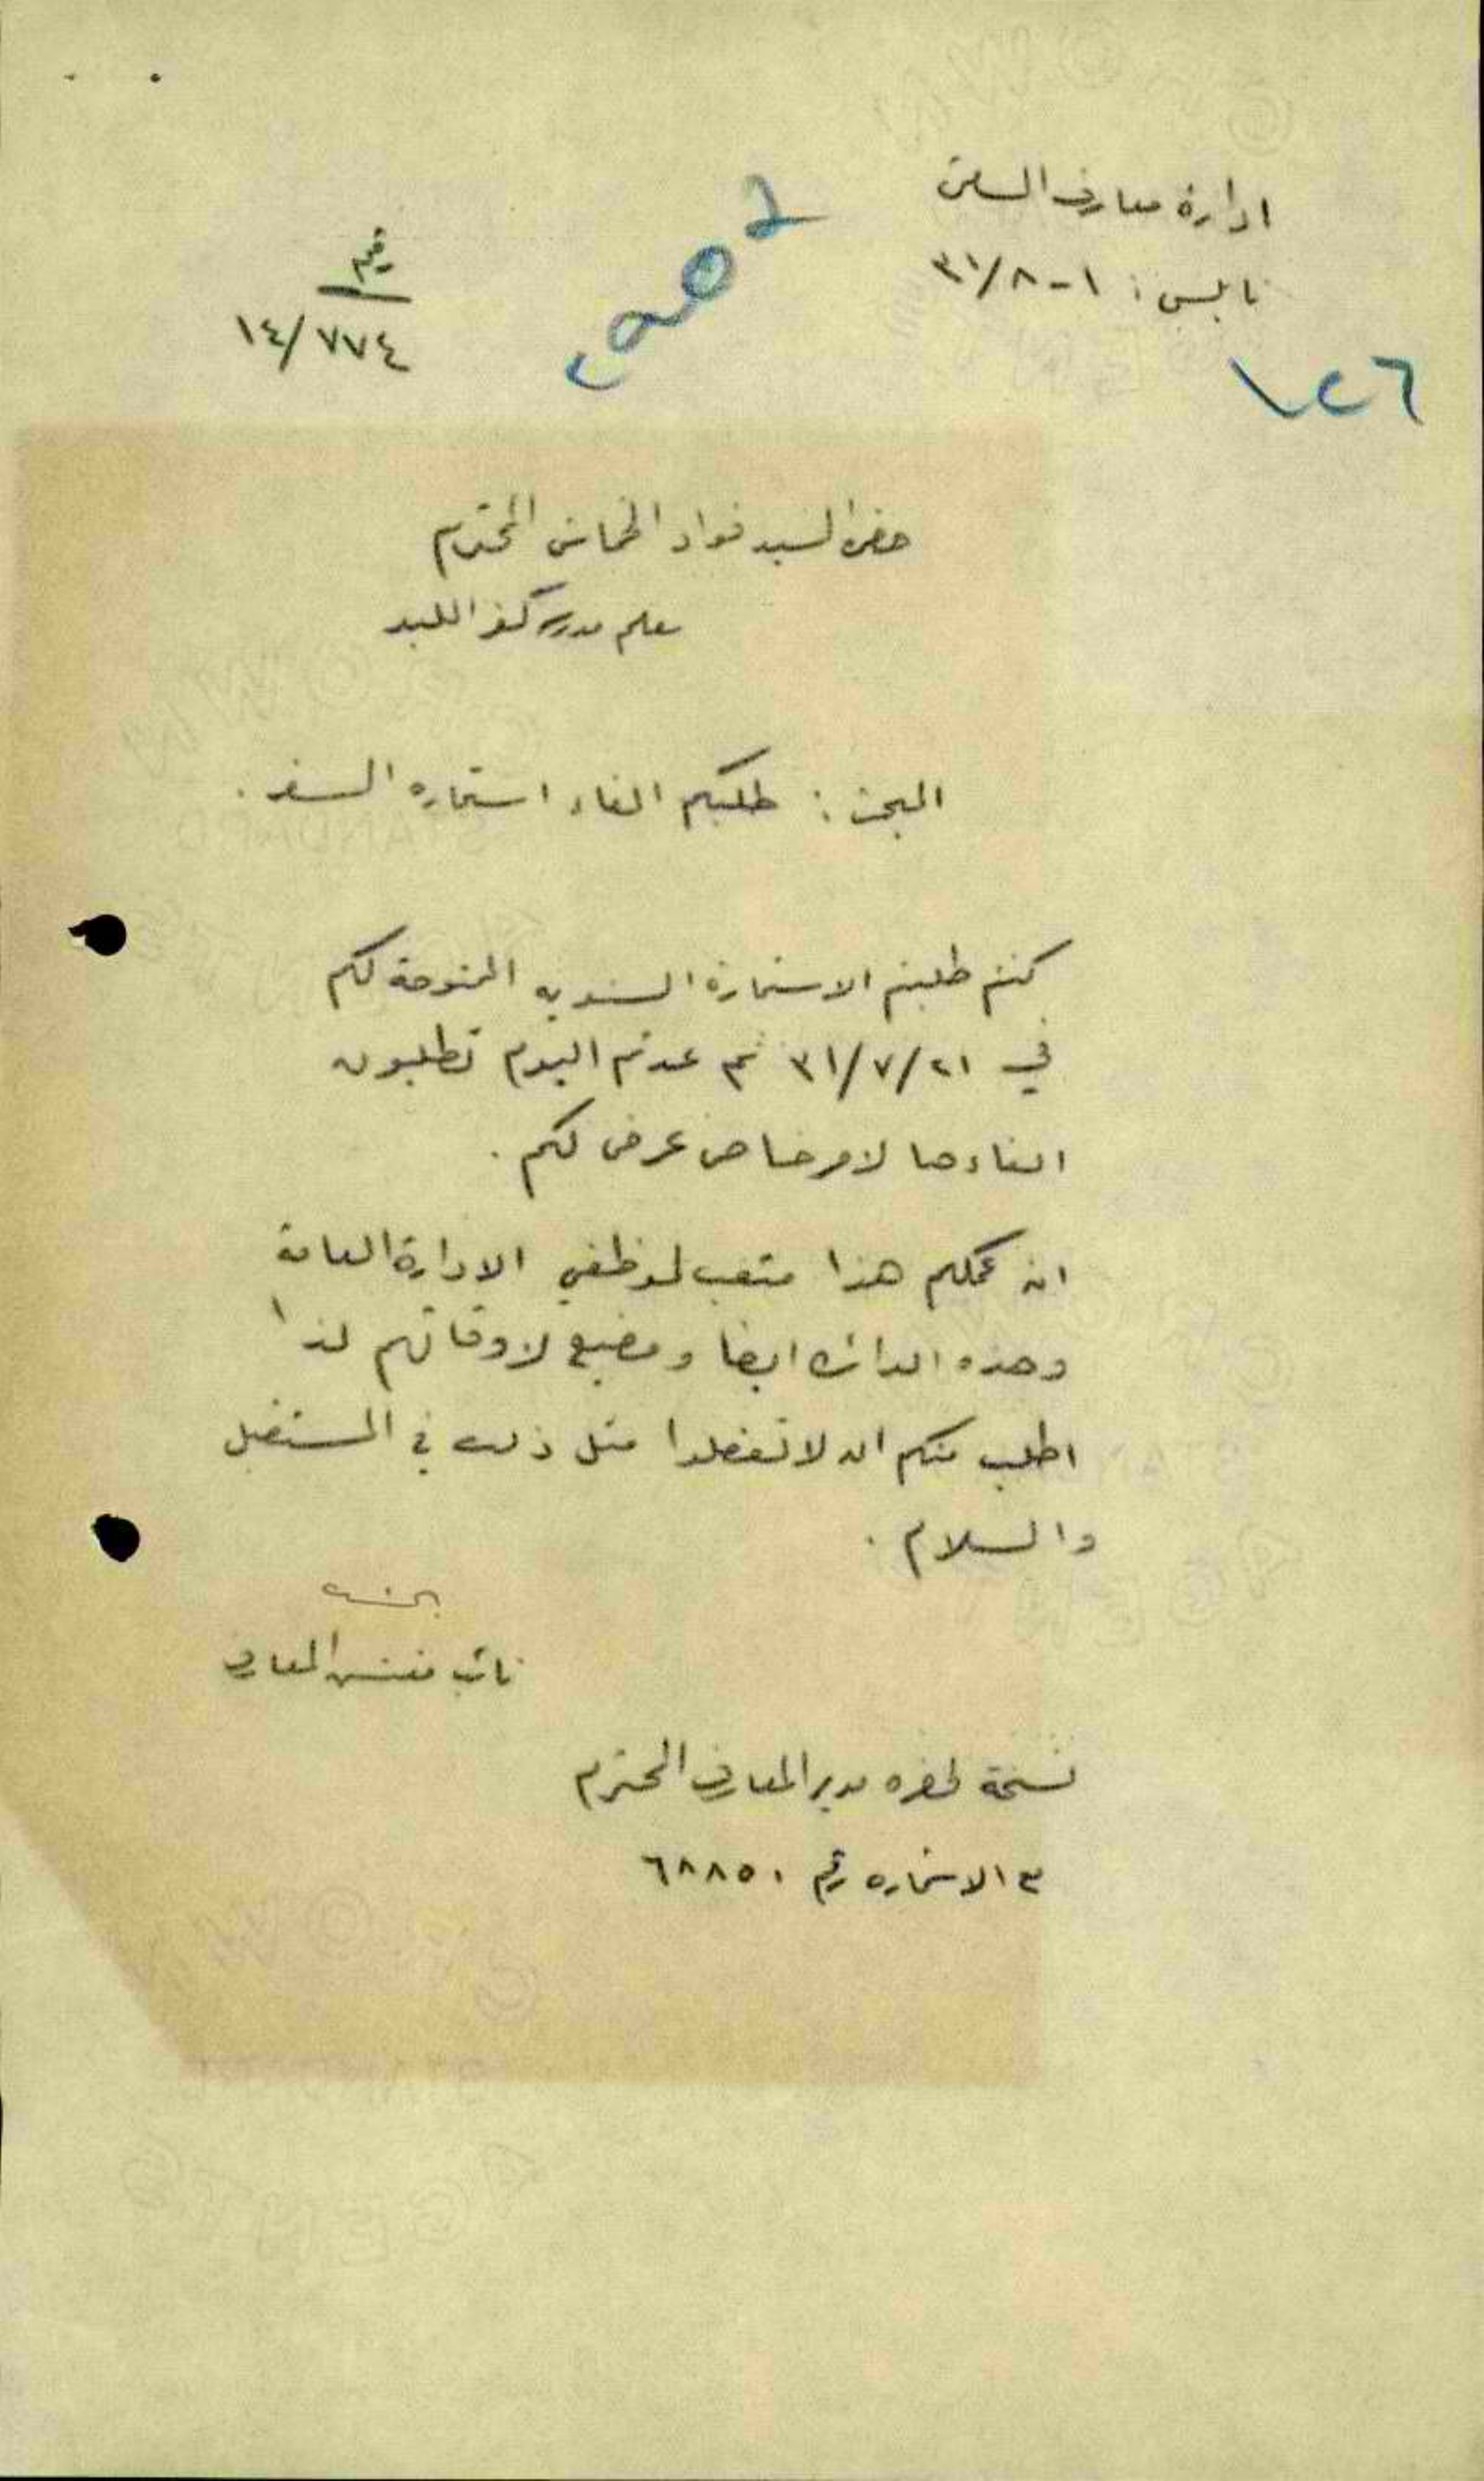 ادارة معارف السامرة
نابلس: ١-٨/٣١
رقم
١٤/٧٧٤
١٢٦
حضرة السيد فواد الخماش المحترم
معلم مدرسة كفر اللبد
البحث: طلبكم الغاء استماره السفر.
كنتم طلبتم الاستمارة السنويه الممنوحة لكم
في ٢١/٧/٣١ ثم عدتم اليوم تطلبون
الغاءها لامر خاص عرض لكم.
ان عملكم هذا متعب لموظفي الادارة العامة
وهذه الدائرة ايضا ومضيع لاوقاتهم لذا
اطلب منكم ان لا تفعلوا مثل ذلك في المستقبل
والسلام.
نائب مفتش المعارف
نسخة لحضرة مدير المعارف المحترم
مع الاستماره رقم ٦٨٨٥٠